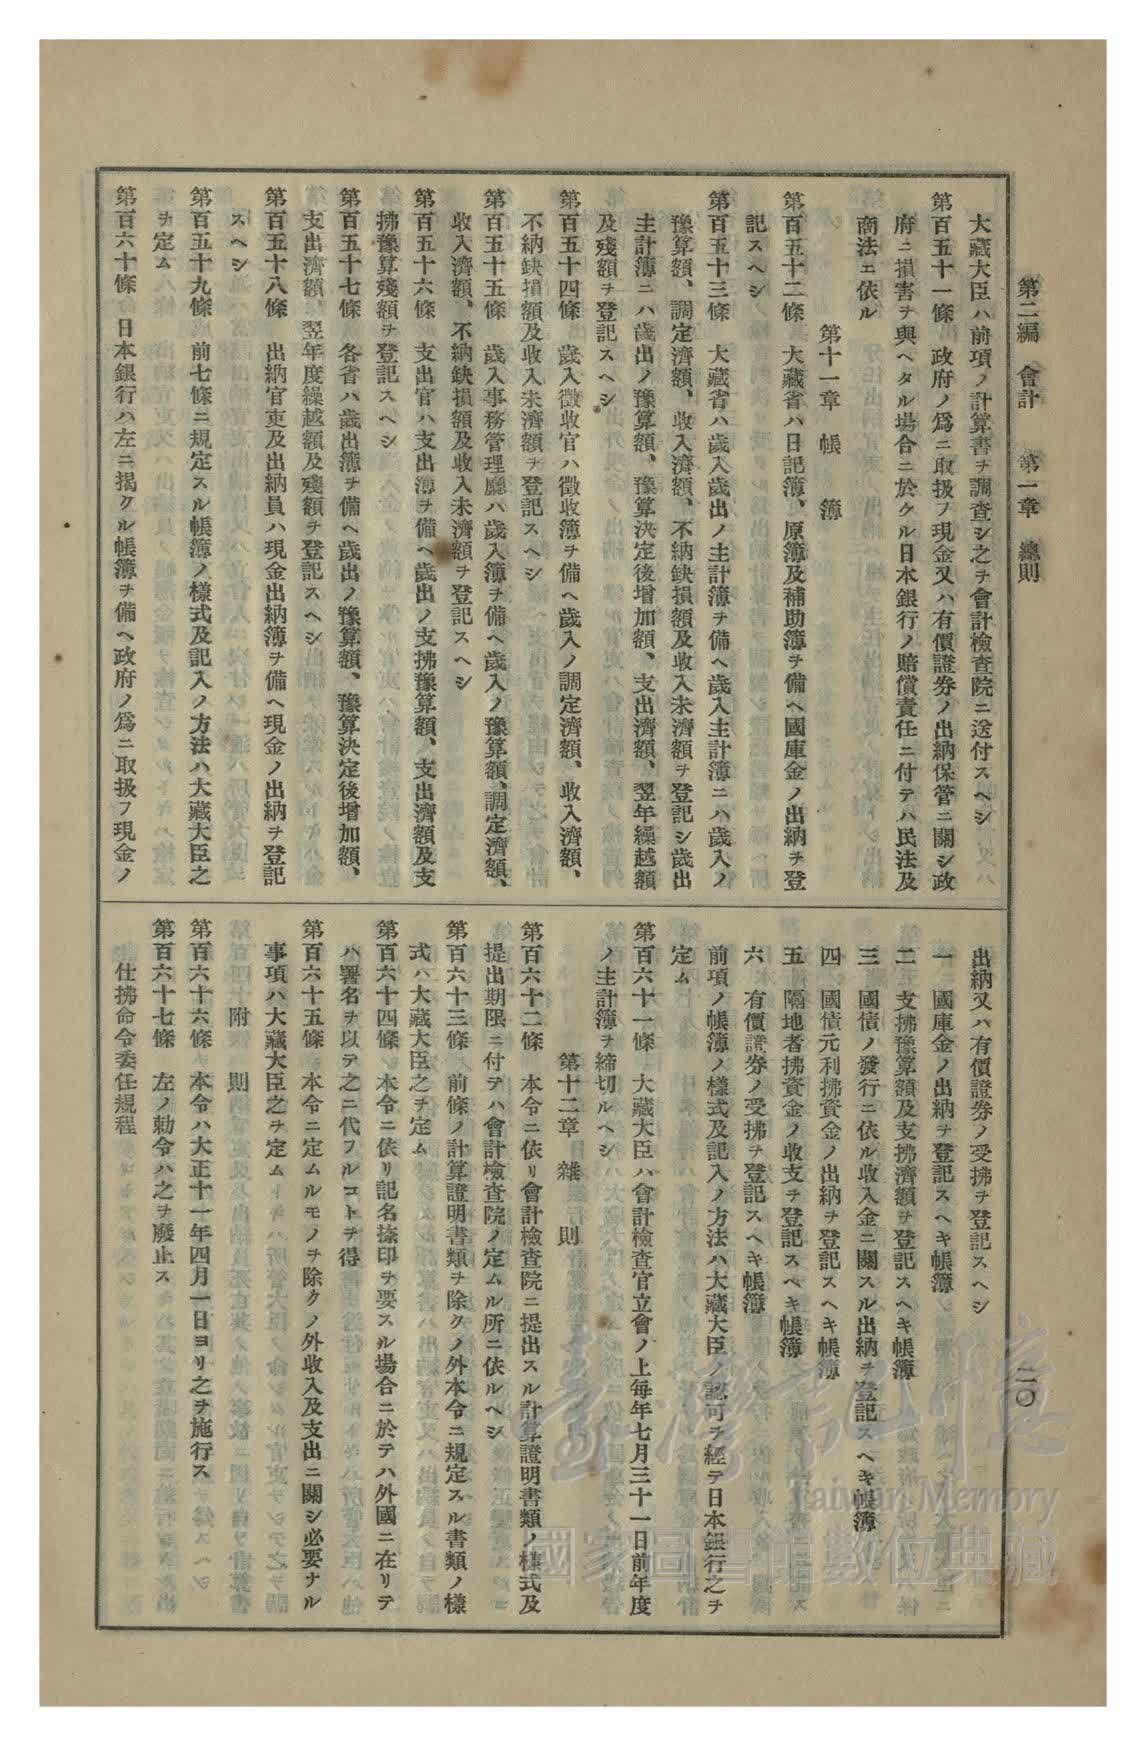 第二編　會計　第一章　總則
二〇
大藏大臣ハ前項ノ計算書ヲ調査シ之ヲ會計檢査院ニ送付スヘシ
第百五十一條　政府ノ爲ニ取扱フ現金又ハ有價證券ノ出納保管ニ關シ政
府ニ損害ヲ與ヘタル場合ニ於ケル日本銀行ノ賠償責任ニ付テハ民法及
商法ニ依ル
第十一章　帳　簿
第百五十二條　大藏省ハ日記簿、原簿及補助簿ヲ備ヘ國庫金ノ出納ヲ登
記スヘシ
第百五十三條　大藏省ハ歲入歲出ノ主計簿ヲ備ヘ歲入主計簿ニハ歲入ノ
豫算額、調定濟額、收入濟額、不納缺損額及收入未濟額ヲ登記シ歲出
主計簿ニハ歲出ノ豫算額、豫算決定後增加額、支出濟額、翌年繰越額
及殘額ヲ登記スヘシ
第百五十四條　歲入徵收官ハ徵收簿ヲ備ヘ歲入ノ調定濟額、收入濟額、
不納缺損額及收入未濟額ヲ登記スヘシ
第百五十五條　歲入事務管理廳ハ歲入簿ヲ備ヘ歲入ノ豫算額、調定濟額、
收入濟額、不納缺損額及收入未濟額ヲ登記スヘシ
第百五十六條　支出官ハ支出簿ヲ備ヘ歲出ノ支拂豫算額、支出濟額及支
拂豫算殘額ヲ登記スヘシ
第百五十七條　各省ハ歲出簿ヲ備ヘ歲出ノ豫算額、豫算決定後增加額、
支出濟額、翌年度繰越額及殘額ヲ登記スヘシ
第百五十八條　出納官吏及出納員ハ現金出納簿ヲ備ヘ現金ノ出納ヲ登記
スヘシ
第百五十九條　前七條ニ規定スル帳簿ノ樣式及記入ノ方法ハ大藏大臣之
ヲ定ム
第百六十條　日本銀行ハ左ニ揭クル帳簿ヲ備ヘ政府ノ爲ニ取扱フ現金ノ
出納又ハ有價證券ノ受拂ヲ登記スヘシ
一　國庫金ノ出納ヲ登記スヘキ帳簿
二　支拂豫算額及支拂濟額ヲ登記スヘキ帳簿
三　國債ノ發行ニ依ル收入金ニ關スル出納ヲ登記スヘキ帳簿
四　國債元利拂資金ノ出納ヲ登記スヘキ帳簿
五　隔地者拂資金ノ收支ヲ登記スヘキ帳簿
六　有價證券ノ受拂ヲ登記スヘキ帳簿
前項ノ帳簿ノ樣式及記入ノ方法ハ大藏大臣ノ認可ヲ經テ日本銀行之ヲ
定ム
第百六十一條　大藏大臣ハ會計檢査官立會ノ上每年七月三十一日前年度
ノ主計簿ヲ締切ルヘシ
第十二章　雜　則
第百六十二條　本令ニ依リ會計檢査院ニ提出スル計算證明書類ノ樣式及
提出期限ニ付テハ會計檢査院ノ定ムル所ニ依ルヘシ
第百六十三條　前條ノ計算證明書類ヲ除クノ外本令ニ規定スル書類ノ樣
式ハ大藏大臣之ヲ定ム
第百六十四條　本令ニ依リ記名捺印ヲ要スル場合ニ於テハ外國ニ在リテ
ハ署名ヲ以テ之ニ代フルコトヲ得
第百六十五條　本令ニ定ムルモノヲ除クノ外收入及支出ニ關シ必要ナル
事項ハ大藏大臣之ヲ定ム
附　則
第百六十六條　本令ハ大正十一年四月一日ヨリ之ヲ施行ス
第百六十七條　左ノ勅令ハ之ヲ廢止ス
仕拂命令委任規程
臺灣記憶
Taiwan Memory
國家圖書館數位典藏